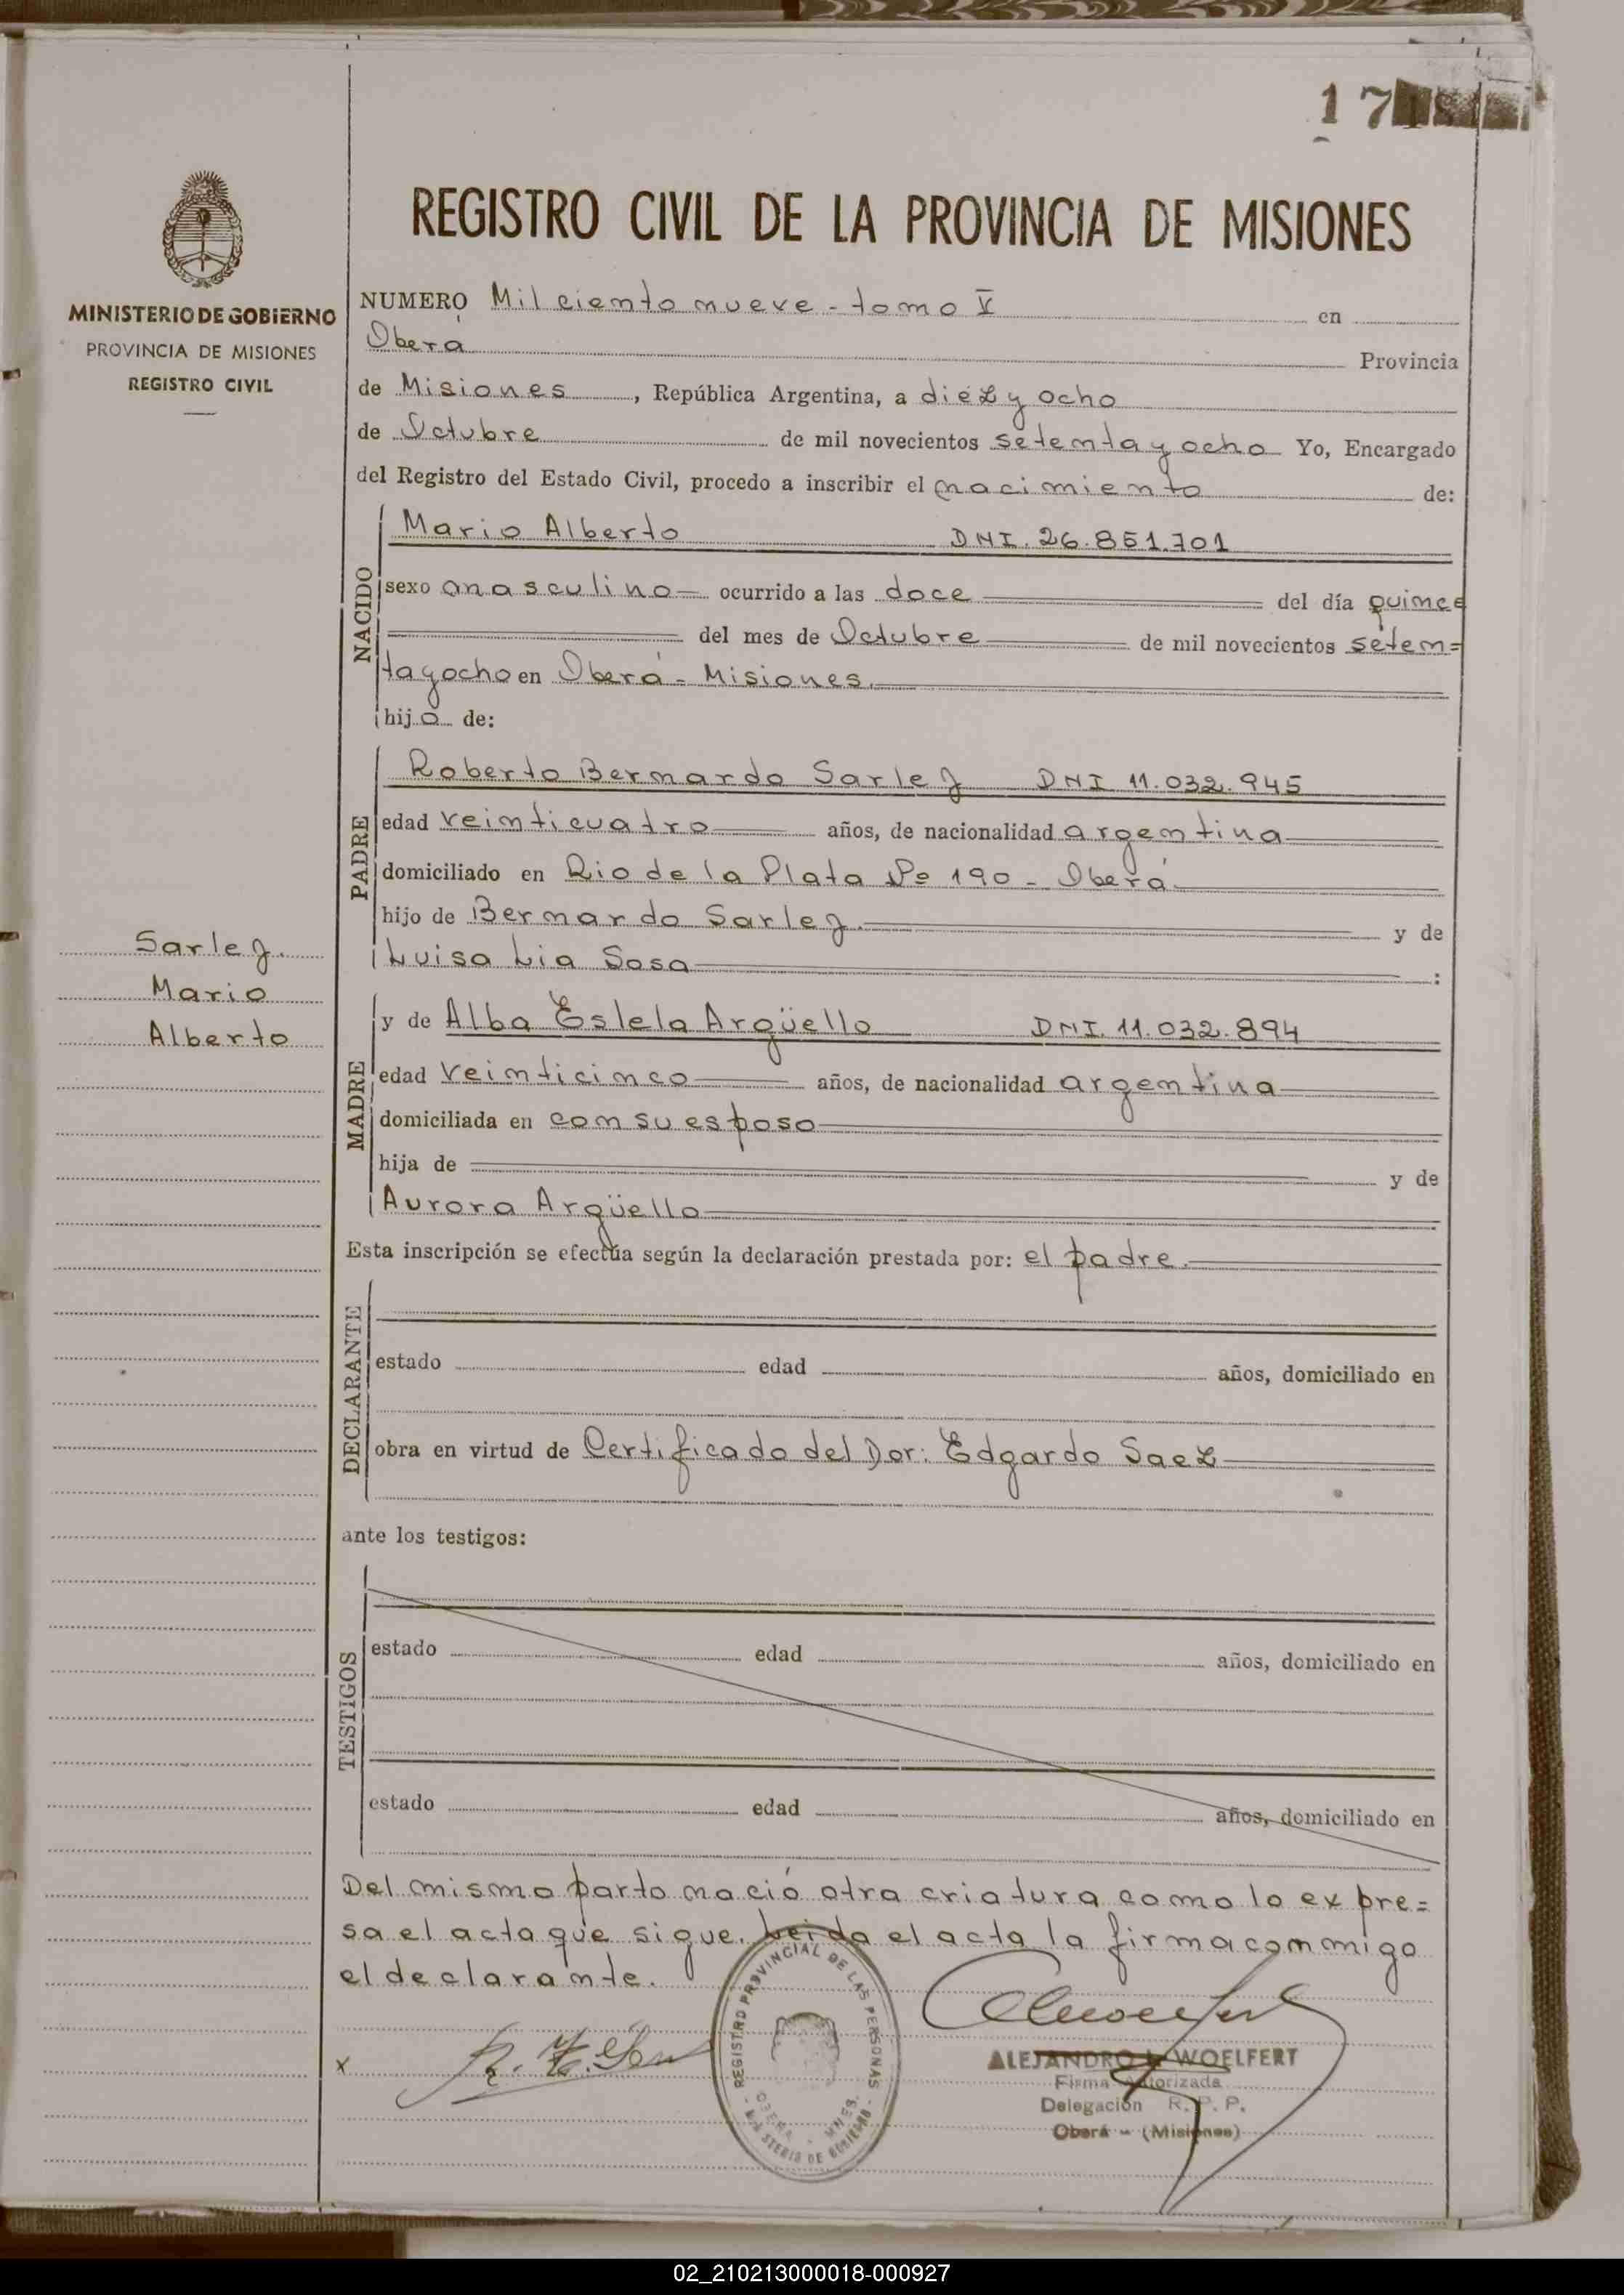 17
REGISTRO CIVIL DE LA PROVINCIA DE MISIONES
MINISTERIO DE GOBIERNO
PROVINCIA DE MISIONES
REGISTRO CIVIL
NUMERO Mil ciento nueve - tomo V en
Oberá Provincia
de Misiones, República Argentina, a diez y ocho
de Octubre de mil novecientos setenta y ocho Yo, Encargado
del Registro del Estado Civil, procedo a inscribir el nacimiento de:
NACIDO
Mario Alberto DNI. 26.851.701
sexo masculino ocurrido a las doce del día quince
del mes de Octubre de mil novecientos seten=
tayocho en Oberá - Misiones.
hijo de:
PADRE
Roberto Bernardo Sarlej DNI 11.032.945
edad veinticuatro años, de nacionalidad argentina
domiciliado en Rio de la Plata Nº 190 - Oberá
hijo de Bernardo Sarlej. y de
Luisa Lia Sosa :
Sarlej.
Mario
Alberto
MADRE
y de Alba Estela Argüello DNI. 11.032.894
edad veinticinco años, de nacionalidad argentina
domiciliada en con su esposo
hija de y de
Aurora Argüello
Esta inscripción se efectúa según la declaración prestada por: el padre.
DECLARANTE
estado edad años, domiciliado en
obra en virtud de Certificado del Dor: Edgardo Saez
ante los testigos:
TESTIGOS
estado edad años, domiciliado en
estado edad años, domiciliado en
Del mismo parto nació otra criatura como lo expre=
sa el acta que sigue. Leida el acta la firma conmigo
el declarante.
REGISTRO PROVINCIAL DE LAS PERSONAS
OBERA - MNES.
MINISTERIO DE GOBIERNO
x
ALEJANDRO L. WOELFERT
Firma Autorizada
Delegación R. P. P.
Oberá - (Misiones)
02_210213000018-000927